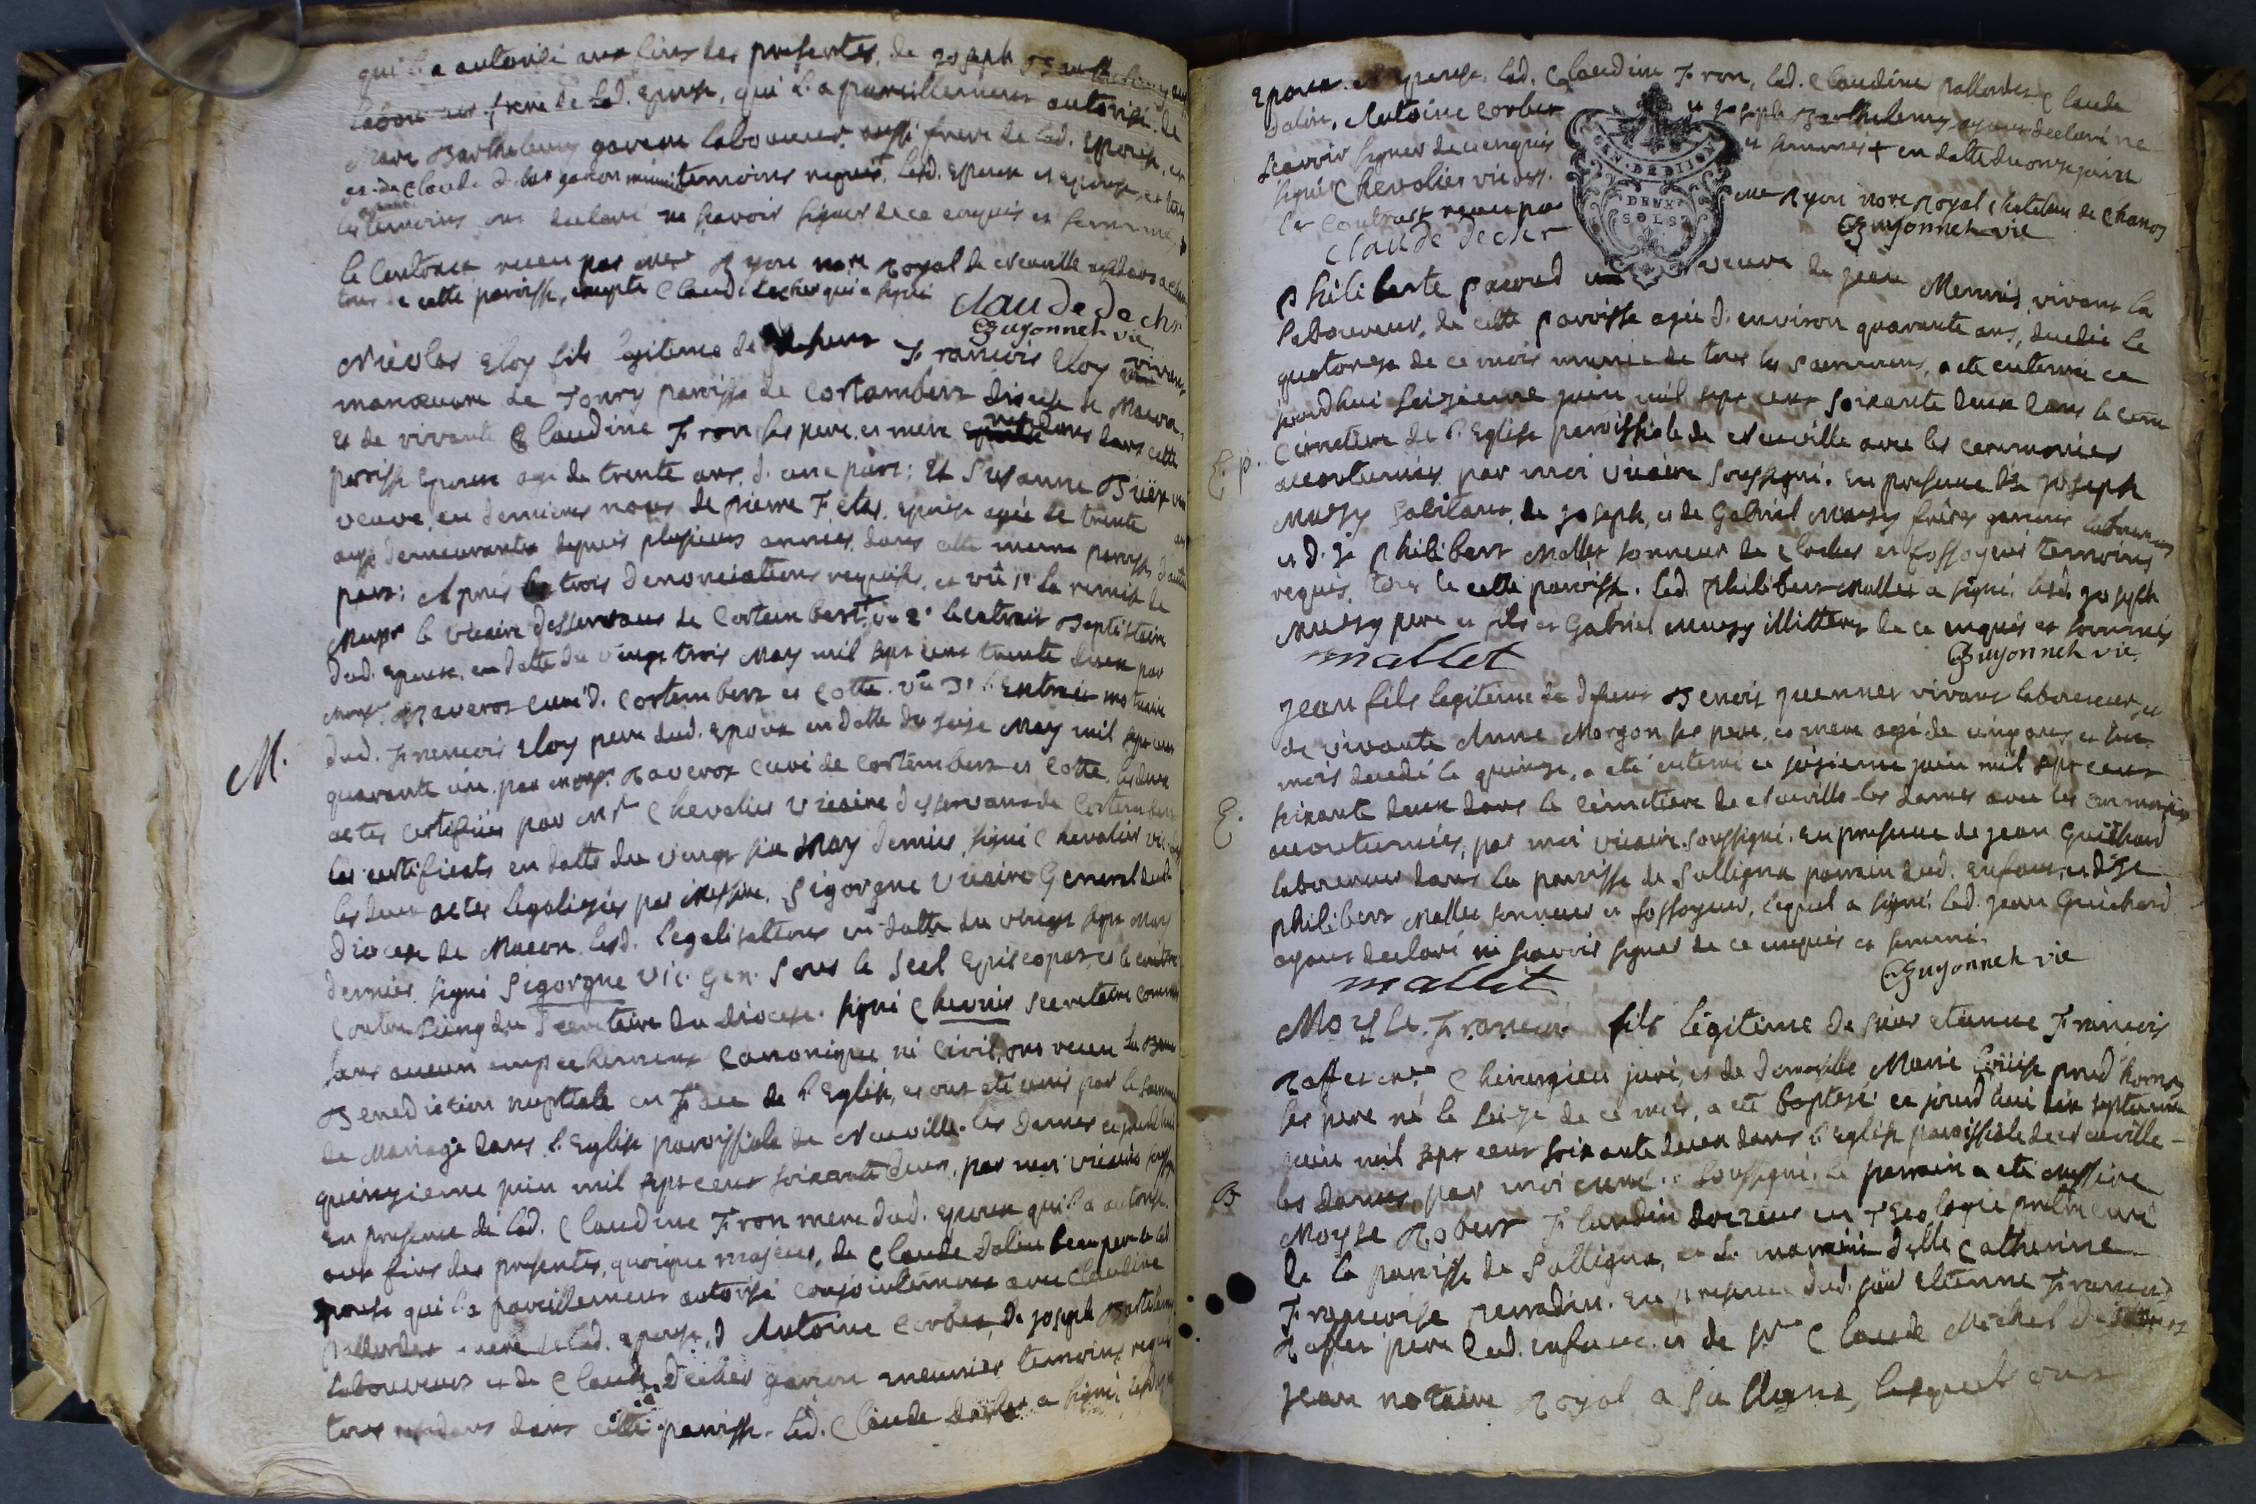 qui l'a autorisé aux fins des presentes, de joseph Barthelemy
laboureur frere de lad. Epouse, qui l'a pareillement autorisé. de
Barthelemy garcon laboureur aussi frere de lad. Epouse, et
et de Claude garcon temoins requis. Lesd. Epoux et epouse, et
les temoins ont declaré ne scavoir signer de ce enquis et sommés,
le Contract receu par Me Ryon nore Royal de Neuville
tous de cette paroisse, excepté Claude decher qui a signé claude decher
Guyonnet vic.
Nicolas Eloy fils legitime de defunt Francois Eloy vivant
manœuvre de Toury paroisse de Cortambert diocese de Macon.
Et de vivante Claudine Fron ses pere et mere residans dans cette
paroisse Epoux agé de trente ans d'une part: Et Susanne
veuve en dernieres noces de pierre epouse agée de trente
ans demeurante depuis plusieurs années dans cette meme paroisse d'autre
part: Apres les trois denonciations requises, et vû 1° la remise de
le Vicaire desservant de Cortambert, vu 2° l'extrait Baptistaire
dud. Epoux, en datte du vingt trois May mil sept cent trente deux par
Raveros curé d. Cortembert et Cotte. Vû 3° l'Extrait mortuaire
dud. Francois Eloy pere dud. Epoux en datte du seize May mil sept cent
quarante un par Raveros Curé de Cortembert et Cotte. les deux
actes certifiés par Mre Chevalier Vicaire desservant de Cortembert
les certificats en datte du vingt six May dernier, signé Chevalier vic.
les deux actes legalisés par Messire Sigorgne Vicaire General dud.
Diocese de Macon. Lesd. legalisations en datte du vingt sept May
dernier signé Sigorgne Vic. Gen. sous le Scel Episcopat, et le contre
Contre Seing du Secretaire du Diocese. signé Chevrier Secretaire comm
sans aucun empechement Canonique ni Civil, ont receu la
Benediction nuptiale en Face de l'Eglise, et ont eté unis par le sacrement
de Mariage dans l'Eglise paroissiale de Neuville-les Dames ce jourd'hui
quinzieme juin mil sept cent soixante deux, par moi vicaire
En presence de lad. Claudine Fron mere dud. epoux qui l'a autorisé.
aux fins des presentes, quoique majeur, de Claude Dalin beau pere de lad.
epouse qui l'a pareillement autorisé conjointement avec Claudine
mere de lad. epouse, d'Antoine Corbet, de joseph Barthelemy
laboureurs et de Claude Decher garcon meunier temoins requis
tous residans dans cette paroisse. Led. Claude decher a signé, lesd.
M.
Epoux et Epouse, lad. Claudine Fron, lad. Claudine Claude
Dalin, Antoine Corbet et joseph Barthelemy ayant declaré ne
scavoir signer de ce enquis et sommés + en datte du onze juin
signé Chevalier
le Contract receu par Me Ryon nore Royal Chatelain de Chanoz
claude decher Guyonnet vic
GEN. DE DIJON
DEUX
SOLS
Philiberte veuve de jean vivant la
laboureur, de cette paroisse agée d'environ quarante ans, decedée le
quatorze de ce mois munie de tous les sacremens, a eté enterrée ce
jourdhui seizieme juin mil sept cent soixante deux dans le cem
Cimetiere de l'Eglise paroissiale de Neuville avec les ceremonies
accoutumées par moi Vicaire Soussigné. En presence de joseph
de joseph, et de Gabriel freres garcons laboureurs
et de Philibert Mallet sonneur de cloches et fossoyeur temoins
requis, tous de cette paroisse. Led. Philibert Mallet a signé. Lesd. joseph
pere et fils et Gabriel illitterés de ce enquis et sommés
mallet Guyonnet vic.
E. p.
Jean fils legitime de defunt Benoit vivant laboureur, et
de vivante Anne Morgon ses pere et mere agé de cinq ans et huit
mois decedé le quinze, a eté enterré ce seizieme juin mil sept cent
soixante deux dans le Cimetiere de Neuville-les dames avec les ceremonies
accoutumées, par moi vicaire soussigné. En presence de jean Guichard
laboureur dans la paroisse de Sulligna parrain dud. enfant, et de
Philibert Mallet sonneur et fossoyeur, lequel a signé. Led. jean Guichard
ayant declaré ne scavoir signer de ce enquis et sommé.
mallet Guyonnet vic
E.
Moyse Francois fils legitime de sieur etienne Francois
Chirurgien juré, et de Demoiselle Marie Prud'homme
ses pere né le seize de ce mois, a eté baptisé ce jourd'hui dix septieme
juin mil sept cent soixante deux dans l'Eglise paroissiale de Neuville-
les Dames, par moi curé soussigné. Le parrain a eté Messire
Moyse Robert Flandin docteur en Theologie prêtre curé
de la paroisse de Sulligna, et la marraine delle Catherine
Francoise En presence dud. sieur etienne Francois
pere dud. enfant, et de Sr Claude Michel
jean notaire Royal a Sulligna, lesquels ont
B